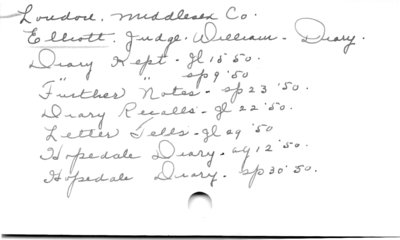 London. Middlesex Co.
Elliott. Judge. William - Diary.
Diary Kept - Jl 15'50.
" " sp 9'50
Further Notes - sp 23'50.
Diary Recalls - Jl 22'50.
Letter Tells - Jl 29'50
Hopedale Diary - ag 12'50.
Hopedale Diary. sp 30'50.